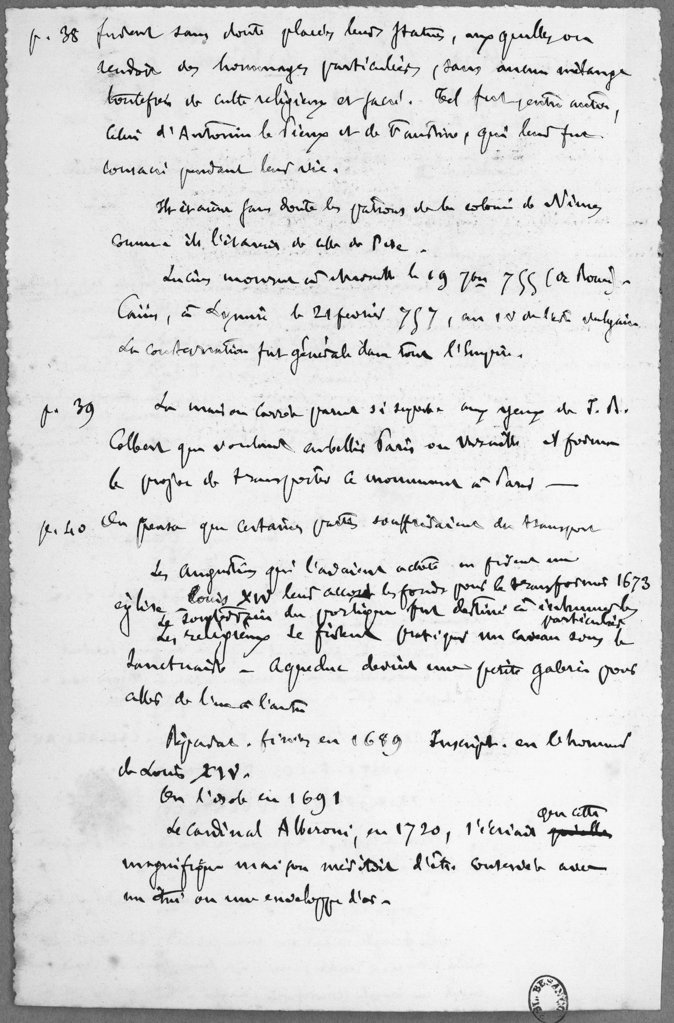 p. 38 furent sans doute placées leurs statues, auxquelles on
rendoit des hommages particuliers, sans aucun mélange
toutefois de culte religieux et sacré. Tel fut, entre autres,
celui d'Antonin le Pieux et de Faustine, qui leur fut
consacré pendant leur vie.
Ils étaient sans doute les patrons de la colonie de Nîmes
comme ils l'étaient de celle de Pise.
Lucius mourut à Marseille le 19 7bre 755 (de Rome).
Caïus, à Lymire le 21 février 757, an 1er de l'ère vulgaire
La consternation fut générale dans tout l'Empire.
p. 39 La maison carrée parut si superbe aux yeux de J. B.
Colbert que voulant embellir Paris ou Versailles il forma
le projet de transporter ce monument à Paris —
p. 40 On pensa que certaines parties souffriraient du transport
Les Augustins qui l'avaient acheté en firent une
église Louis XIV leur accorda les fonds pour le transformer 1673
Le souterrain du portique fut destiné à inhumer les
particuliers
Les religieux se firent pratiquer un caveau sous le
Sanctuaire – Aqueduc devint une petite galerie pour
aller de l'un à l'autre
Réparat. finies en 1689 Inscript. en l'honneur
de Louis XIV.
On l'isole en 1691
Le cardinal Alberoni, en 1720, s'écriait que cette
magnifique maison méritoit d'être conservée avec
un étui ou une enveloppe d'or.
BIB. BESANÇON